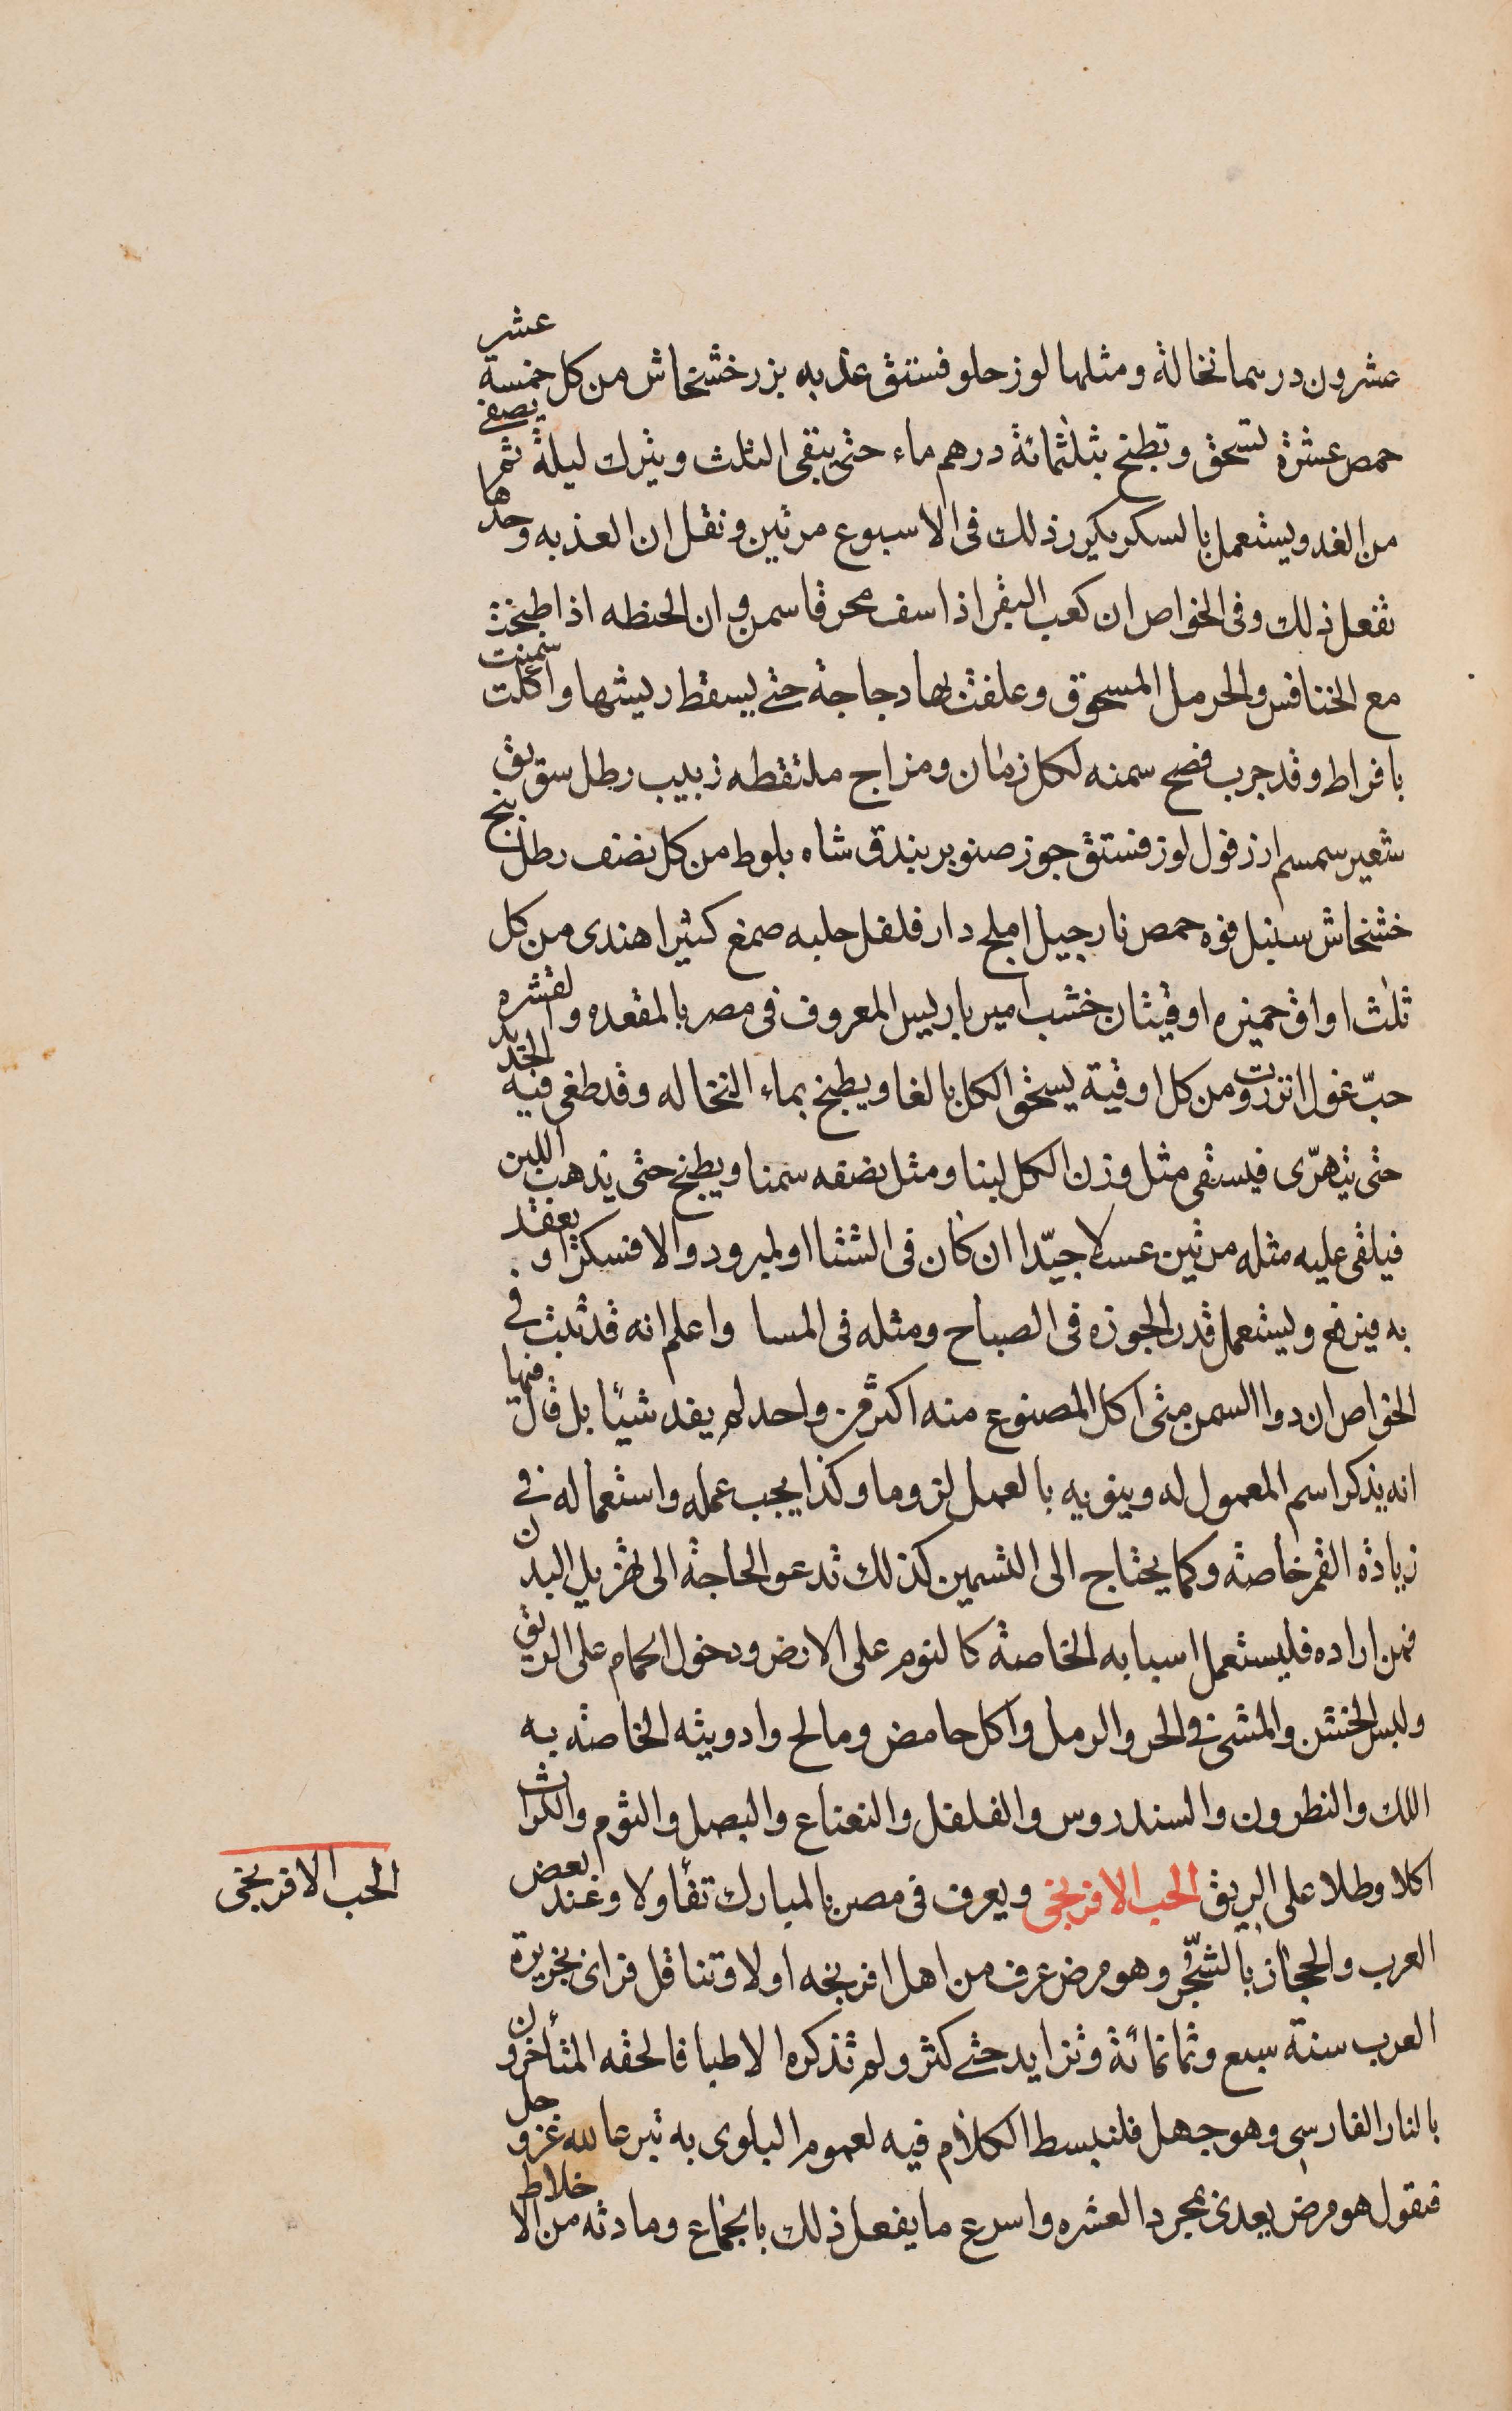 عشرون درهما نخالة ومثلها لوز حلو فستق عذبه بزر خشخاش من كل خمسة عشر
حمص عشرة تسحق وتطبخ بثلثمائة درهم ماء حتى يبقى الثلث ويترك ليلة ثم يصفى
من الغد ويستعمل بالسكر يكرر ذلك فى الاسبوع مرتين ونقل ان العذبه وحدها
تفعل ذلك وفى الخواص ان كعب البقر اذا سف محرقا سمن وان الحنظه اذا طبخت
مع الخنافس والحرمل المسحوق وعلفت بها دجاجة حتى يسقط ريشها واكلت سمنت
بافراط وقد جرب فصح سمنه لكل زمان ومزاج ملتقطه زبيب رطل سويق
شعير سمسم ارز فول لوز فستق جوز صنوبر بندق شاه بلوط من كل نصف رطل بنج
خشخاش سنبل فوه حمص نارجيل املج دار فلفل حلبه صمغ كثيرا هندى من كل
ثلث اواق خميره اوقيتان خشب امير باريس المعروف فى مصر بالمقعده ولقشره
حبّ غول انزروت ومن كل اوقية يسحق الكل بالغا ويطبخ بماء النخاله وقد طغى فيه الحديد
حتى يتهرّى فيسقى مثل وزن الكل لبنا ومثل نصفه سمنا ويطبخ حتى يذهب اللبن
فيلقى عليه مثله مرتين عسلا جيّدا ان كان فى الشتا او لمبرود والا فسكرا ويعقد
به فيرفع ويستعمل قدر الجوزه فى الصباح ومثله فى المسا واعلم انه قد ثبت فى
الخواص ان دوا السمن متى اكل المصنوع منه اكثر من واحد لم يفد شيئا بل قال فيها
انه يذكر اسم المعمول له وينويه بالعمل لزوما وكذا يجب عمله واستعماله فى
زيادة القمر خاصة وكما يحتاج الى التسمين كذلك تدعو الحاجة الى تهزيل البدن
فمن اراده فليستعمل اسبابه الخاصة كالنوم على الارض ودخول الحمام على الريق
ولبس الخشن والمشى فى الحر والرمل واكل حامض ومالح وادويته الخاصة به
اللك والنطرون والسندروس والفلفل والنعناع والبصل والثوم والكراث
اكلا وطلا على الريق الحب الافرنجى ويعرف فى مصر بالمبارك تفأولا وعند بعض
الحب الافرنجى
العرب والحجاز بالشّجر وهو مرض عرف من اهل افرنجه اولا وتناقل فراى بجزيرة
العرب سنة سبع وثمانمائة وتزايد حتى كثر ولم تذكره الاطبا فالحقه المتأخرون
بالنار الفارسى وهو جهل فلنبسط الكلام فيه لعموم البلوى به تبرعا لله عز وجل
فنقول هو مرض يعدى بمجرد العشره واسرع ما يفعل ذلك بالجماع ومادته من الاخلاط